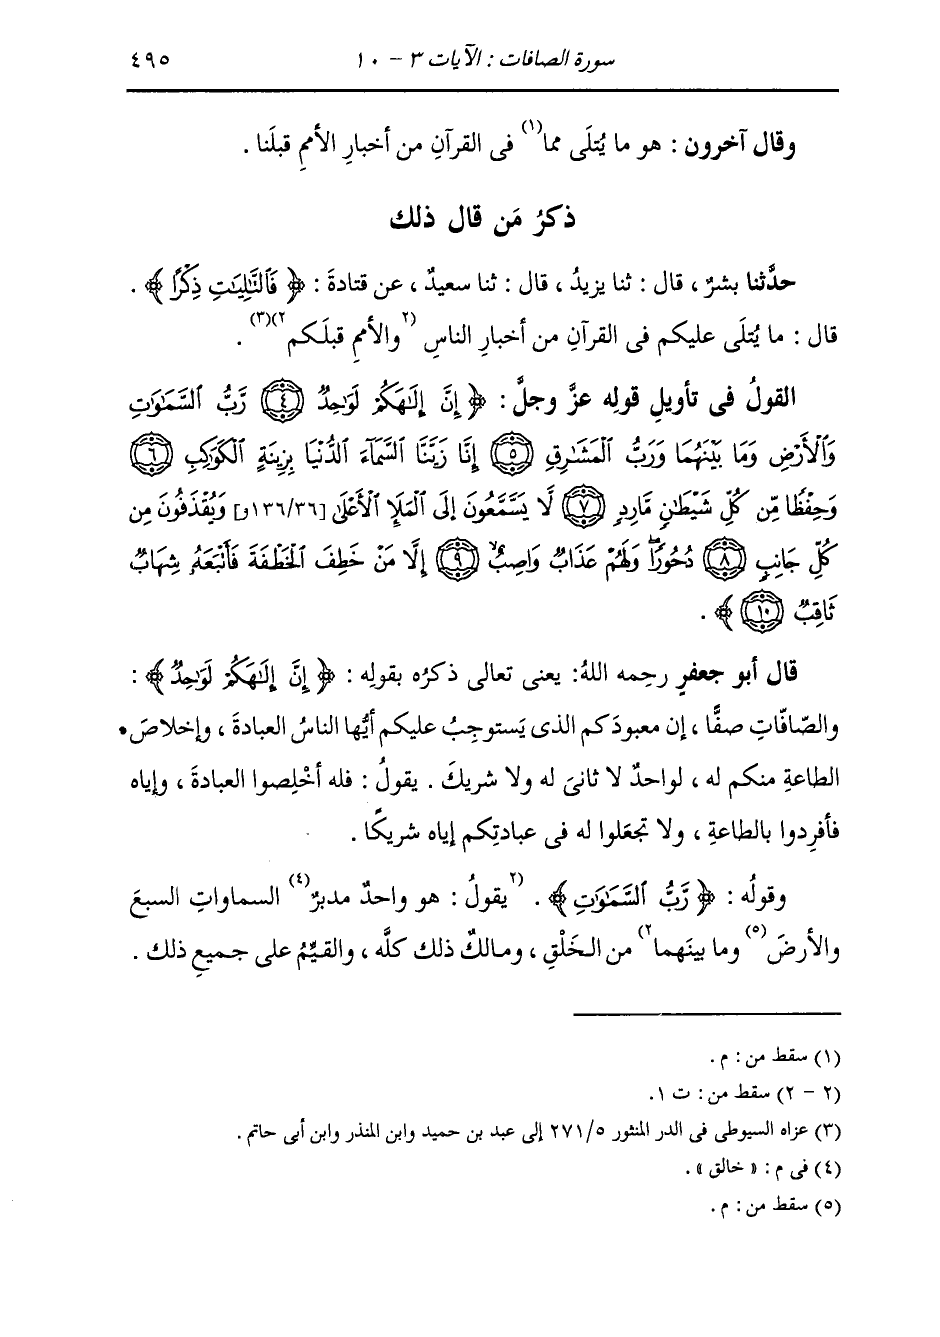 سورة الصافات : الآيات ٣ - ١٠ ٤٩٥
وقال آخرون : هو ما يُتلَى مما(١) فى القرآنِ من أخبارِ الأممِ قبلَنا .
ذكرُ مَن قال ذلك
حدَّثنا بشرٌ ، قال : ثنا يزيدُ ، قال : ثنا سعيدٌ ، عن قتادةَ : ﴿ فَٱلتَّٰلِيَٰتِ ذِكْرًا ﴾ .
قال : ما يُتلَى عليكم فى القرآنِ من أخبارِ الناسِ (٢والأممِ قبلَكم٢)(٣) .
القولُ فى تأويلِ قولِه عزَّ وجلَّ : ﴿ إِنَّ إِلَٰهَكُمْ لَوَٰحِدٌ ٤ رَّبُّ ٱلسَّمَٰوَٰتِ
وَٱلْأَرْضِ وَمَا بَيْنَهُمَا وَرَبُّ ٱلْمَشَٰرِقِ ٥ إِنَّا زَيَّنَّا ٱلسَّمَآءَ ٱلدُّنْيَا بِزِينَةٍ ٱلْكَوَاكِبِ ٦
وَحِفْظًا مِّن كُلِّ شَيْطَٰنٍ مَّارِدٍ ٧ لَّا يَسَّمَّعُونَ إِلَى ٱلْمَلَإِ ٱلْأَعْلَىٰ [١٣٦/٣٦و] وَيُقْذَفُونَ مِن
كُلِّ جَانِبٍ ٨ دُحُورًا ۖ وَلَهُمْ عَذَابٌ وَاصِبٌ ٩ إِلَّا مَنْ خَطِفَ ٱلْخَطْفَةَ فَأَتْبَعَهُۥ شِهَابٌ
ثَاقِبٌ ١٠ ﴾ .
قال أبو جعفرٍ رحِمه اللهُ : يعنى تعالى ذكرُه بقولِه : ﴿ إِنَّ إِلَٰهَكُمْ لَوَٰحِدٌ ﴾ :
والصّافّاتِ صفًّا ، إن معبودَكم الذى يَستوجِبُ عليكم أيُّها الناسُ العبادةَ ، وإخلاصَ
الطاعةِ منكم له ، لواحدٌ لا ثانىَ له ولا شريكَ . يقولُ : فله أخْلِصوا العبادةَ ، وإياه
فأفرِدوا بالطاعةِ ، ولا تجعَلوا له فى عبادتِكم إياه شريكًا .
وقولُه : ﴿ رَّبُّ ٱلسَّمَٰوَٰتِ ﴾ . (٢يقولُ : هو واحدٌ مدبرٌ(٤) السماواتِ السبعَ
والأرضَ(٥) وما بينَهما٢) من الخَلْقِ ، ومالكٌ ذلك كلَّه ، والقيِّمُ على جميعِ ذلك .
(١) سقط من : م .
(٢ - ٢) سقط من : ت ١.
(٣) عزاه السيوطى فى الدر المنثور ٢٧١/٥ إلى عبد بن حميد وابن المنذر وابن أبى حاتم .
(٤) فى م : « خالق » .
(٥) سقط من : م .